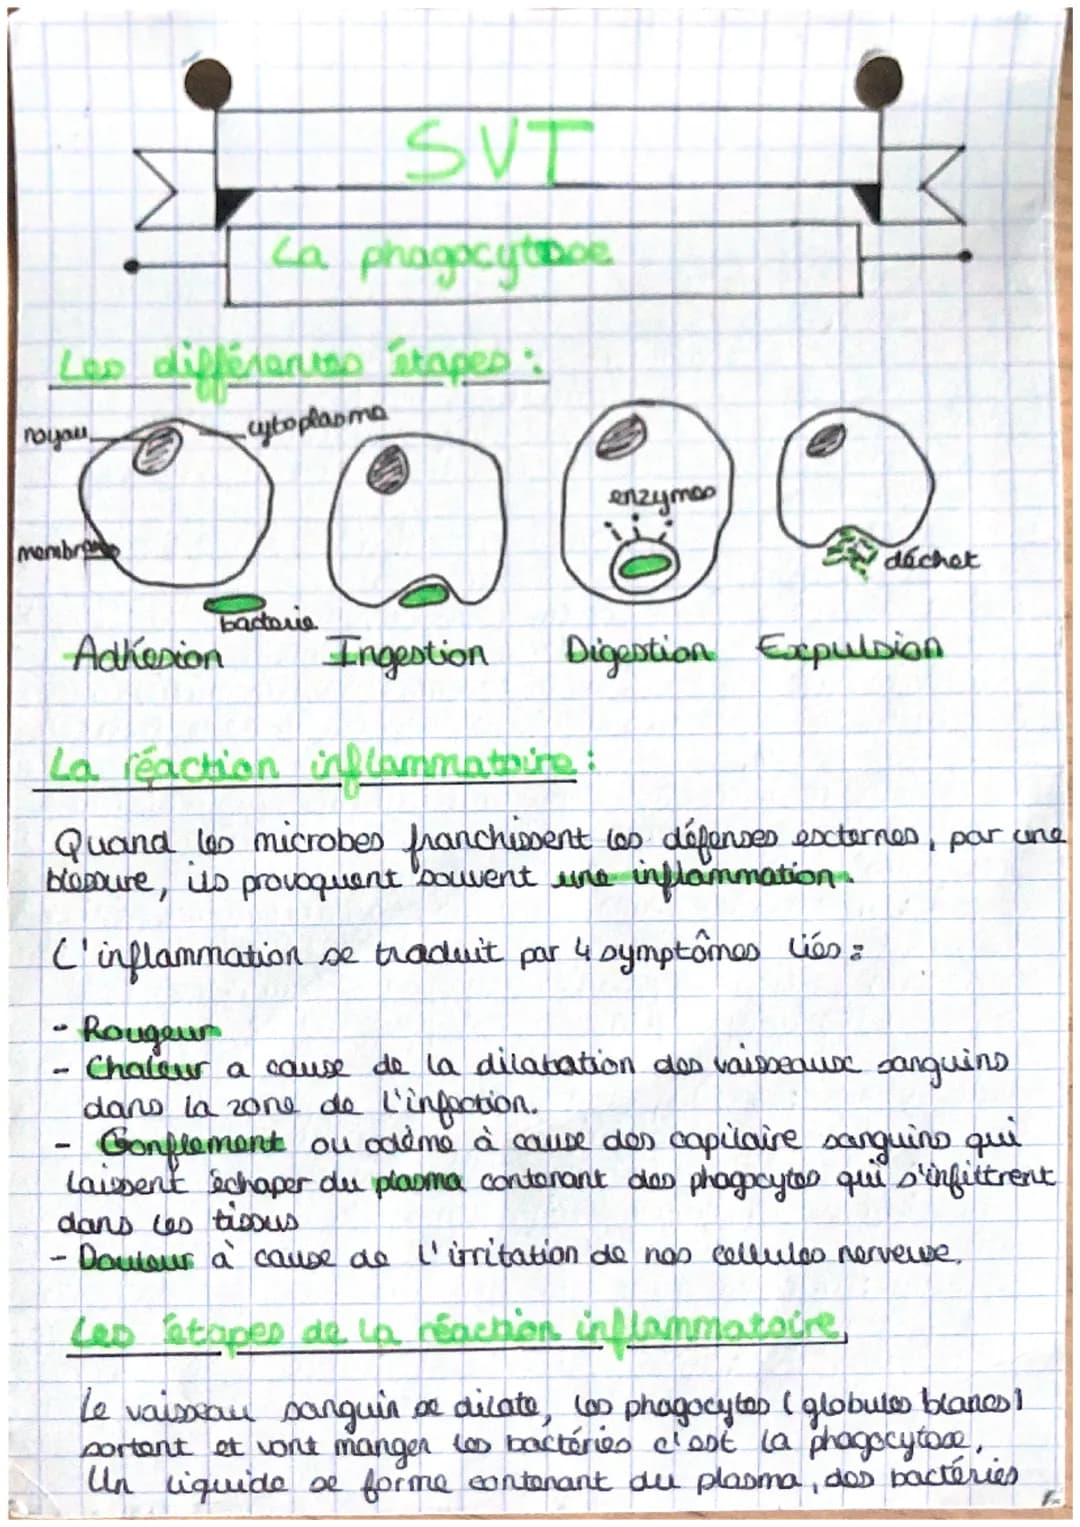 SVT
La phagocytose
Les différentes étapes :
noyau
cytoplasme
membrane
bacterie
enzymes
déchet
Adhesion
Ingestion
Digestion
Expulsion
La réaction inflammatoire :
Quand les microbes franchissent les défenses externes, par une
blessure, ils provoquent souvent une inflammation.
L'inflammation se traduit par 4 symptômes liés :
- Rougeur
- Chaleur a cause de la dilatation des vaisseaux sanguins
dans la zone de l'infection.
- Gonflement ou odème à cause des capilaire sanguins qui
laissent échaper du plasma contenant des phagocytes qui s'infiltrent
dans les tissus
- Douleur à cause de l'irritation de nos cellules nerveuse.
Les étapes de la réaction inflammatoire
Le vaisseau sanguin se dilate, les phagocytes (globules blancs)
sortent et vont manger les bactéries c'est la phagocytose.
Un liquide se forme contenant du plasma, des bactéries